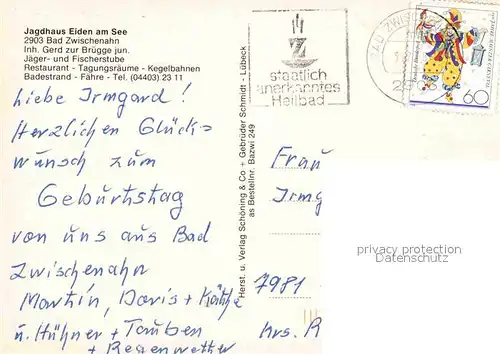 Jagdhaus Eiden am See
2903 Bad Zwischenahn
Inh. Gerd zur Brügge jun.
Jäger- und Fischerstube
Restaurant - Tagungsräume - Kegelbahnen
Badestrand - Fähre - Tel. (04403) 23 11
Liebe Irmgard!
Herzlichen Glück=
wunsch zum
Geburtstag
von uns aus Bad
Zwischenahn
Martin, Doris + Käthe
u. Hühner + Tauben
+ Regenwetter
Herst. u. Verlag Schöning & Co + Gebrüder Schmidt - Lübeck
as Bestellnr. Bazwi 249
Z
staatlich
anerkanntes
Heilbad
BAD ZWI
60
Frau
Irmg
7981
hrs. R
privacy protection
Datenschutz